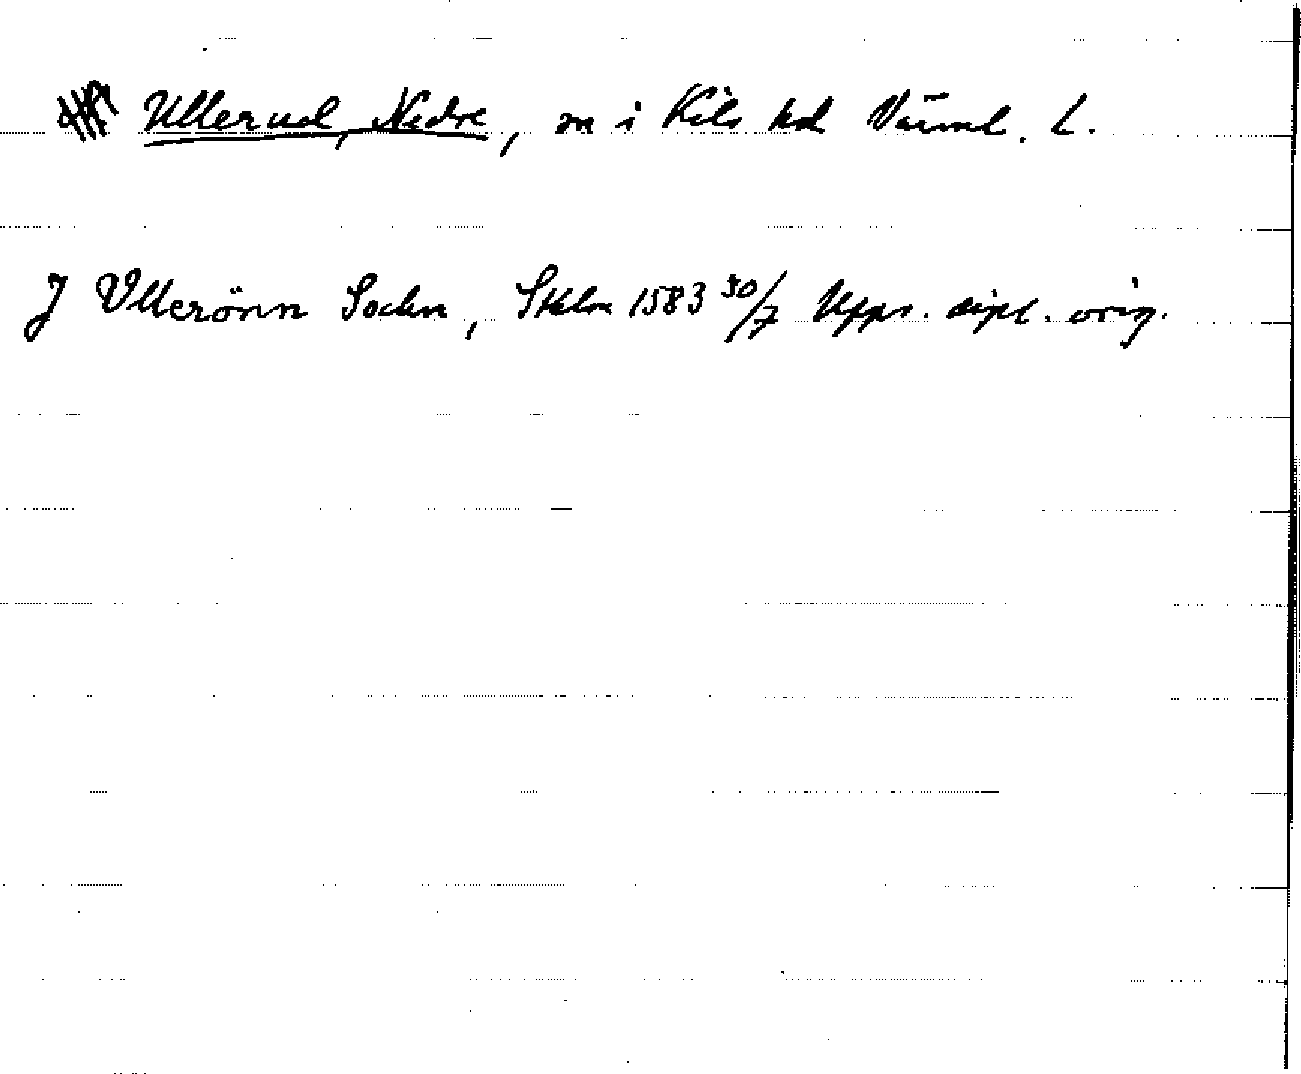 Ullerud, Nedre, sn i Kils hd Värml. L.
J Vllerönn Sochn, Sthlm 1583 30/7 Upps. dipl. orig.